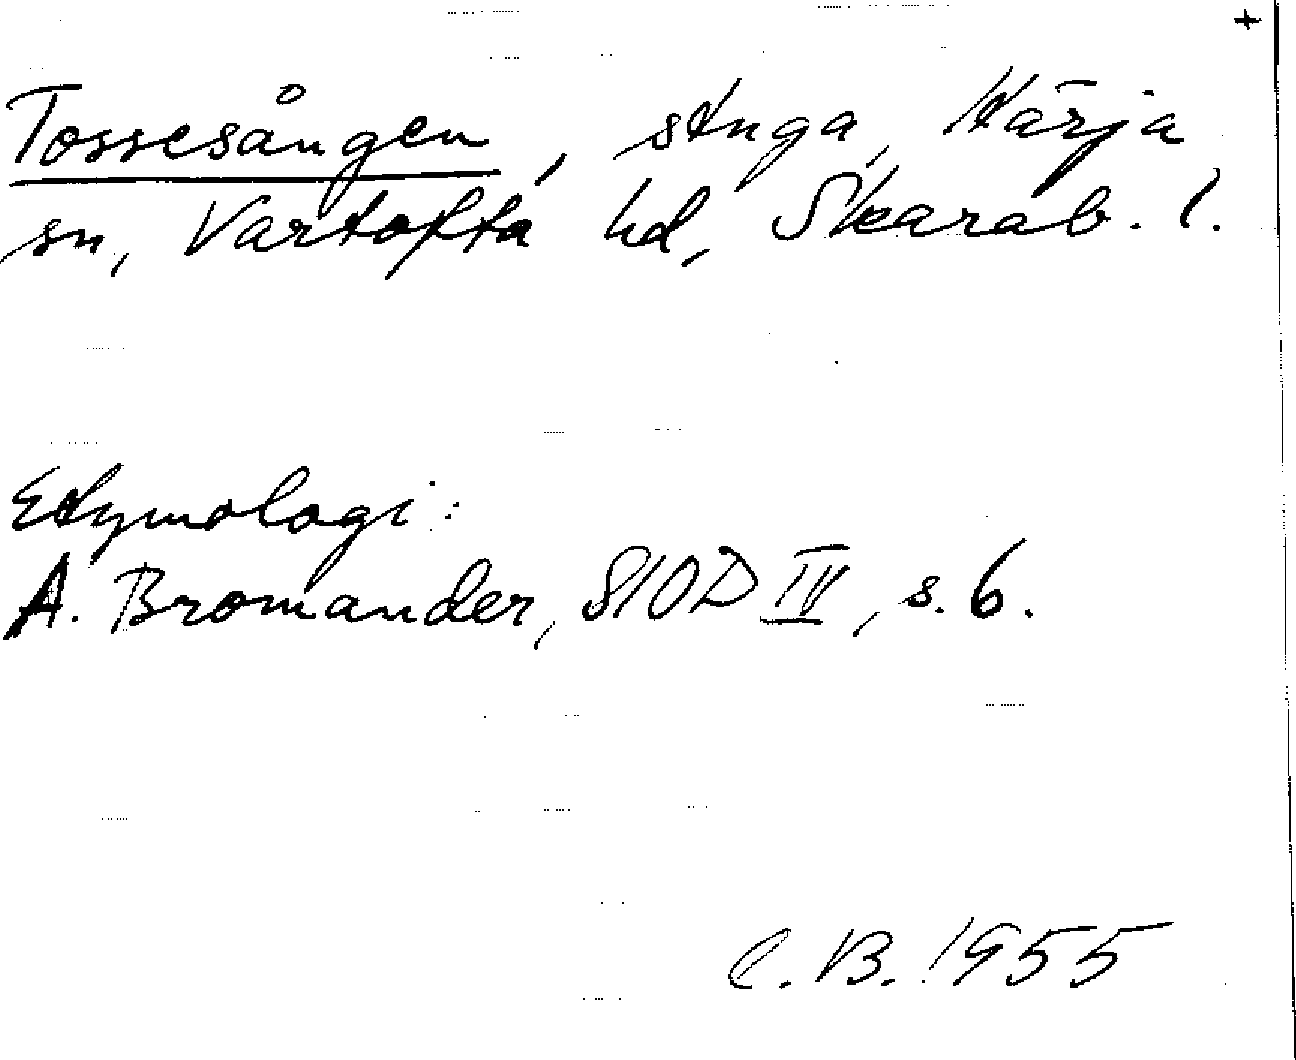 +
Tossesången, stuga, Härja
sn, Vartofta hd, Skarab. l.
Etymologi:
A. Bromander, SIOD IV, s. 6.
C. B. 1955